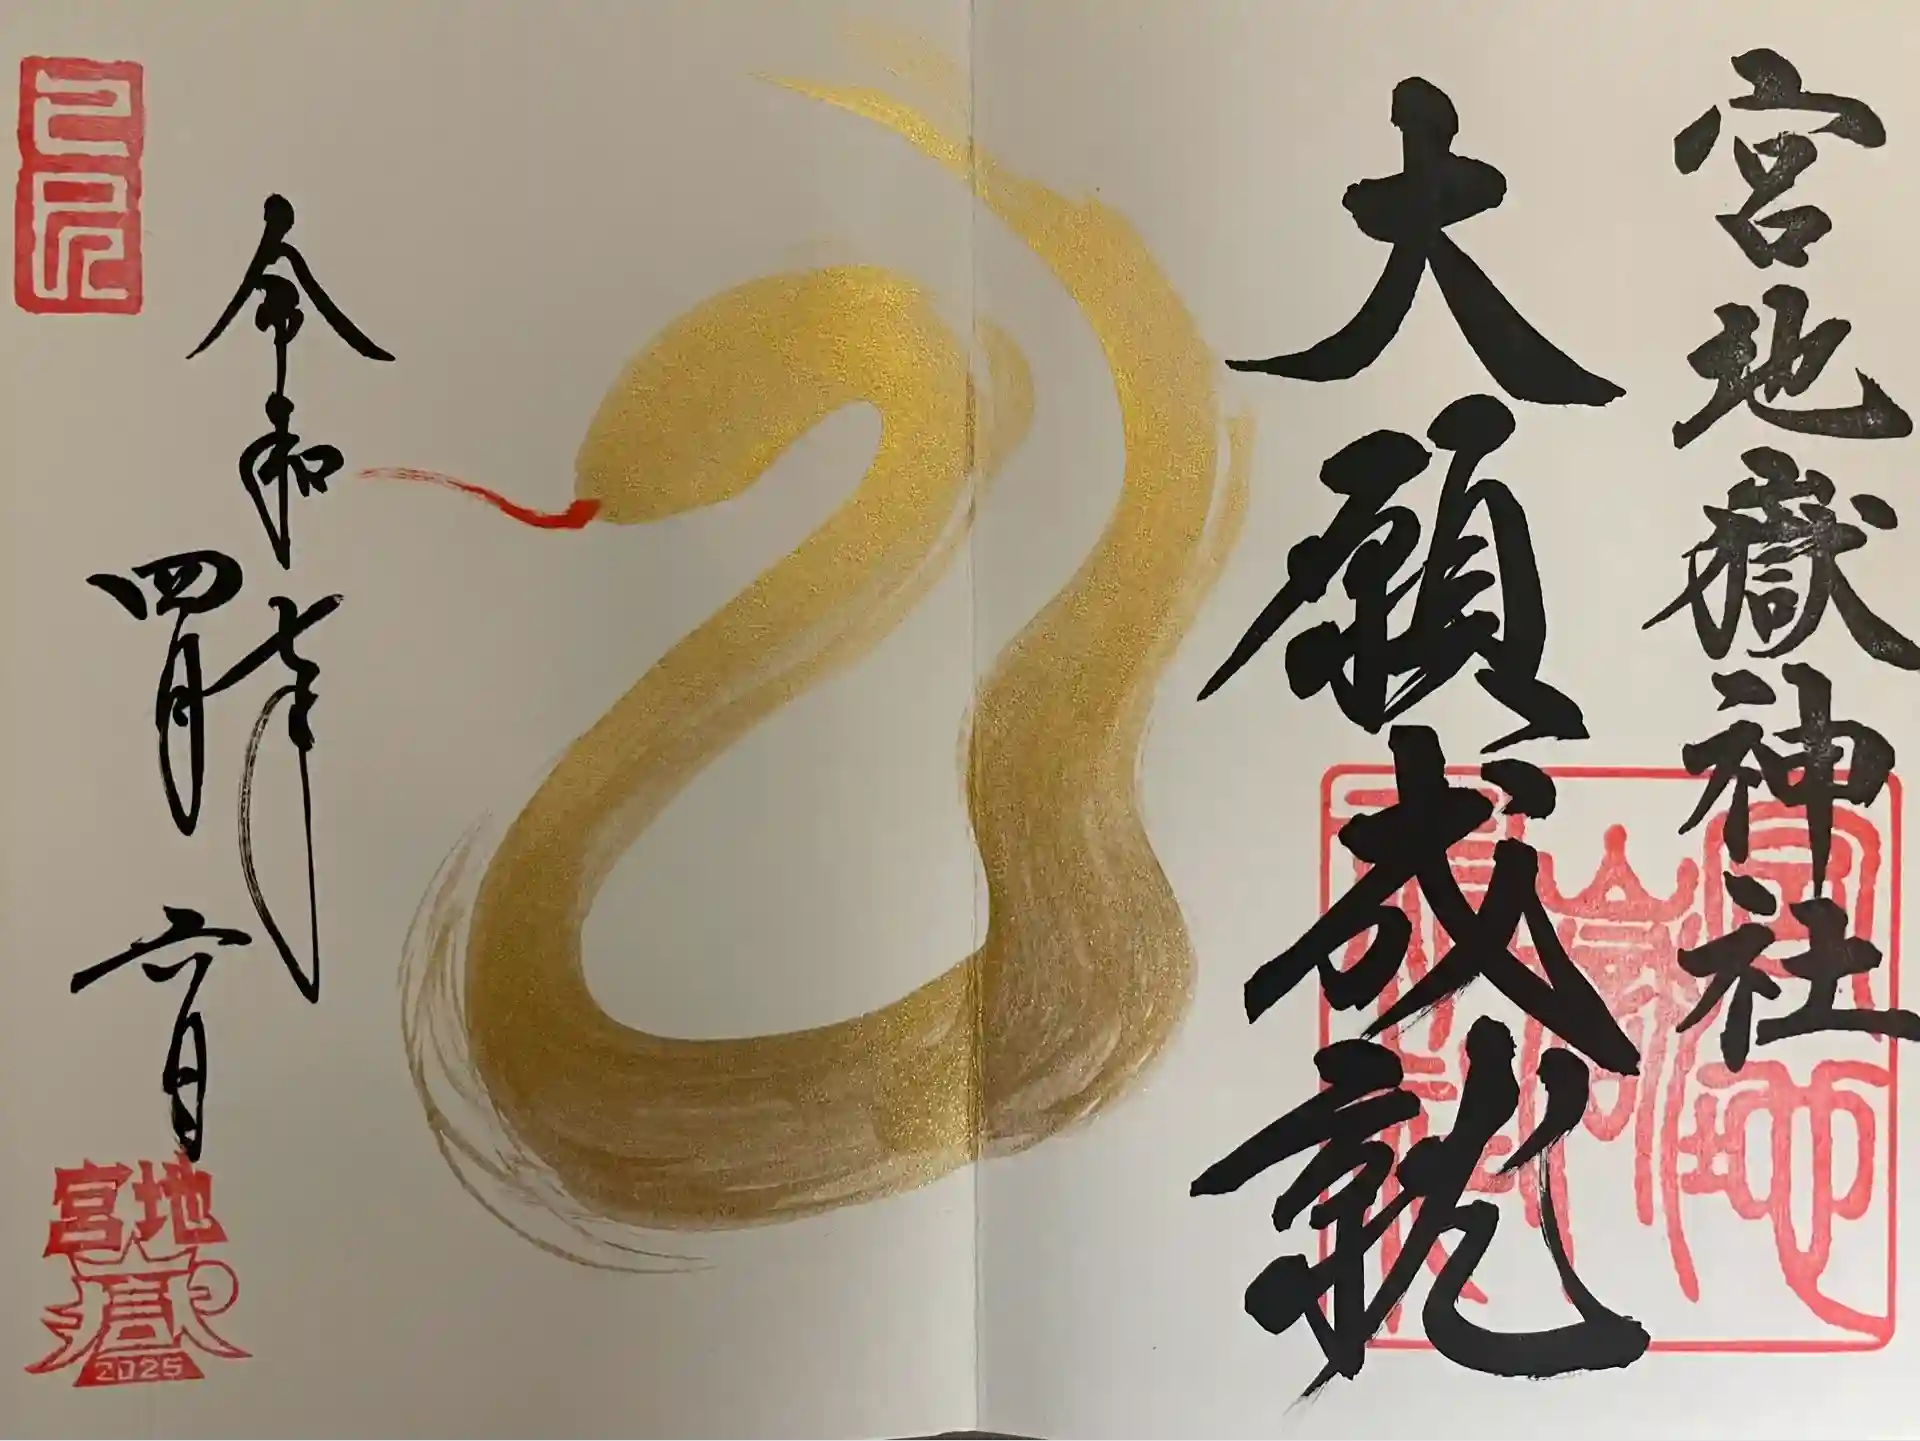 宮地嶽神社
大願成就
令和七年
四月六日
宮地
嶽
2025